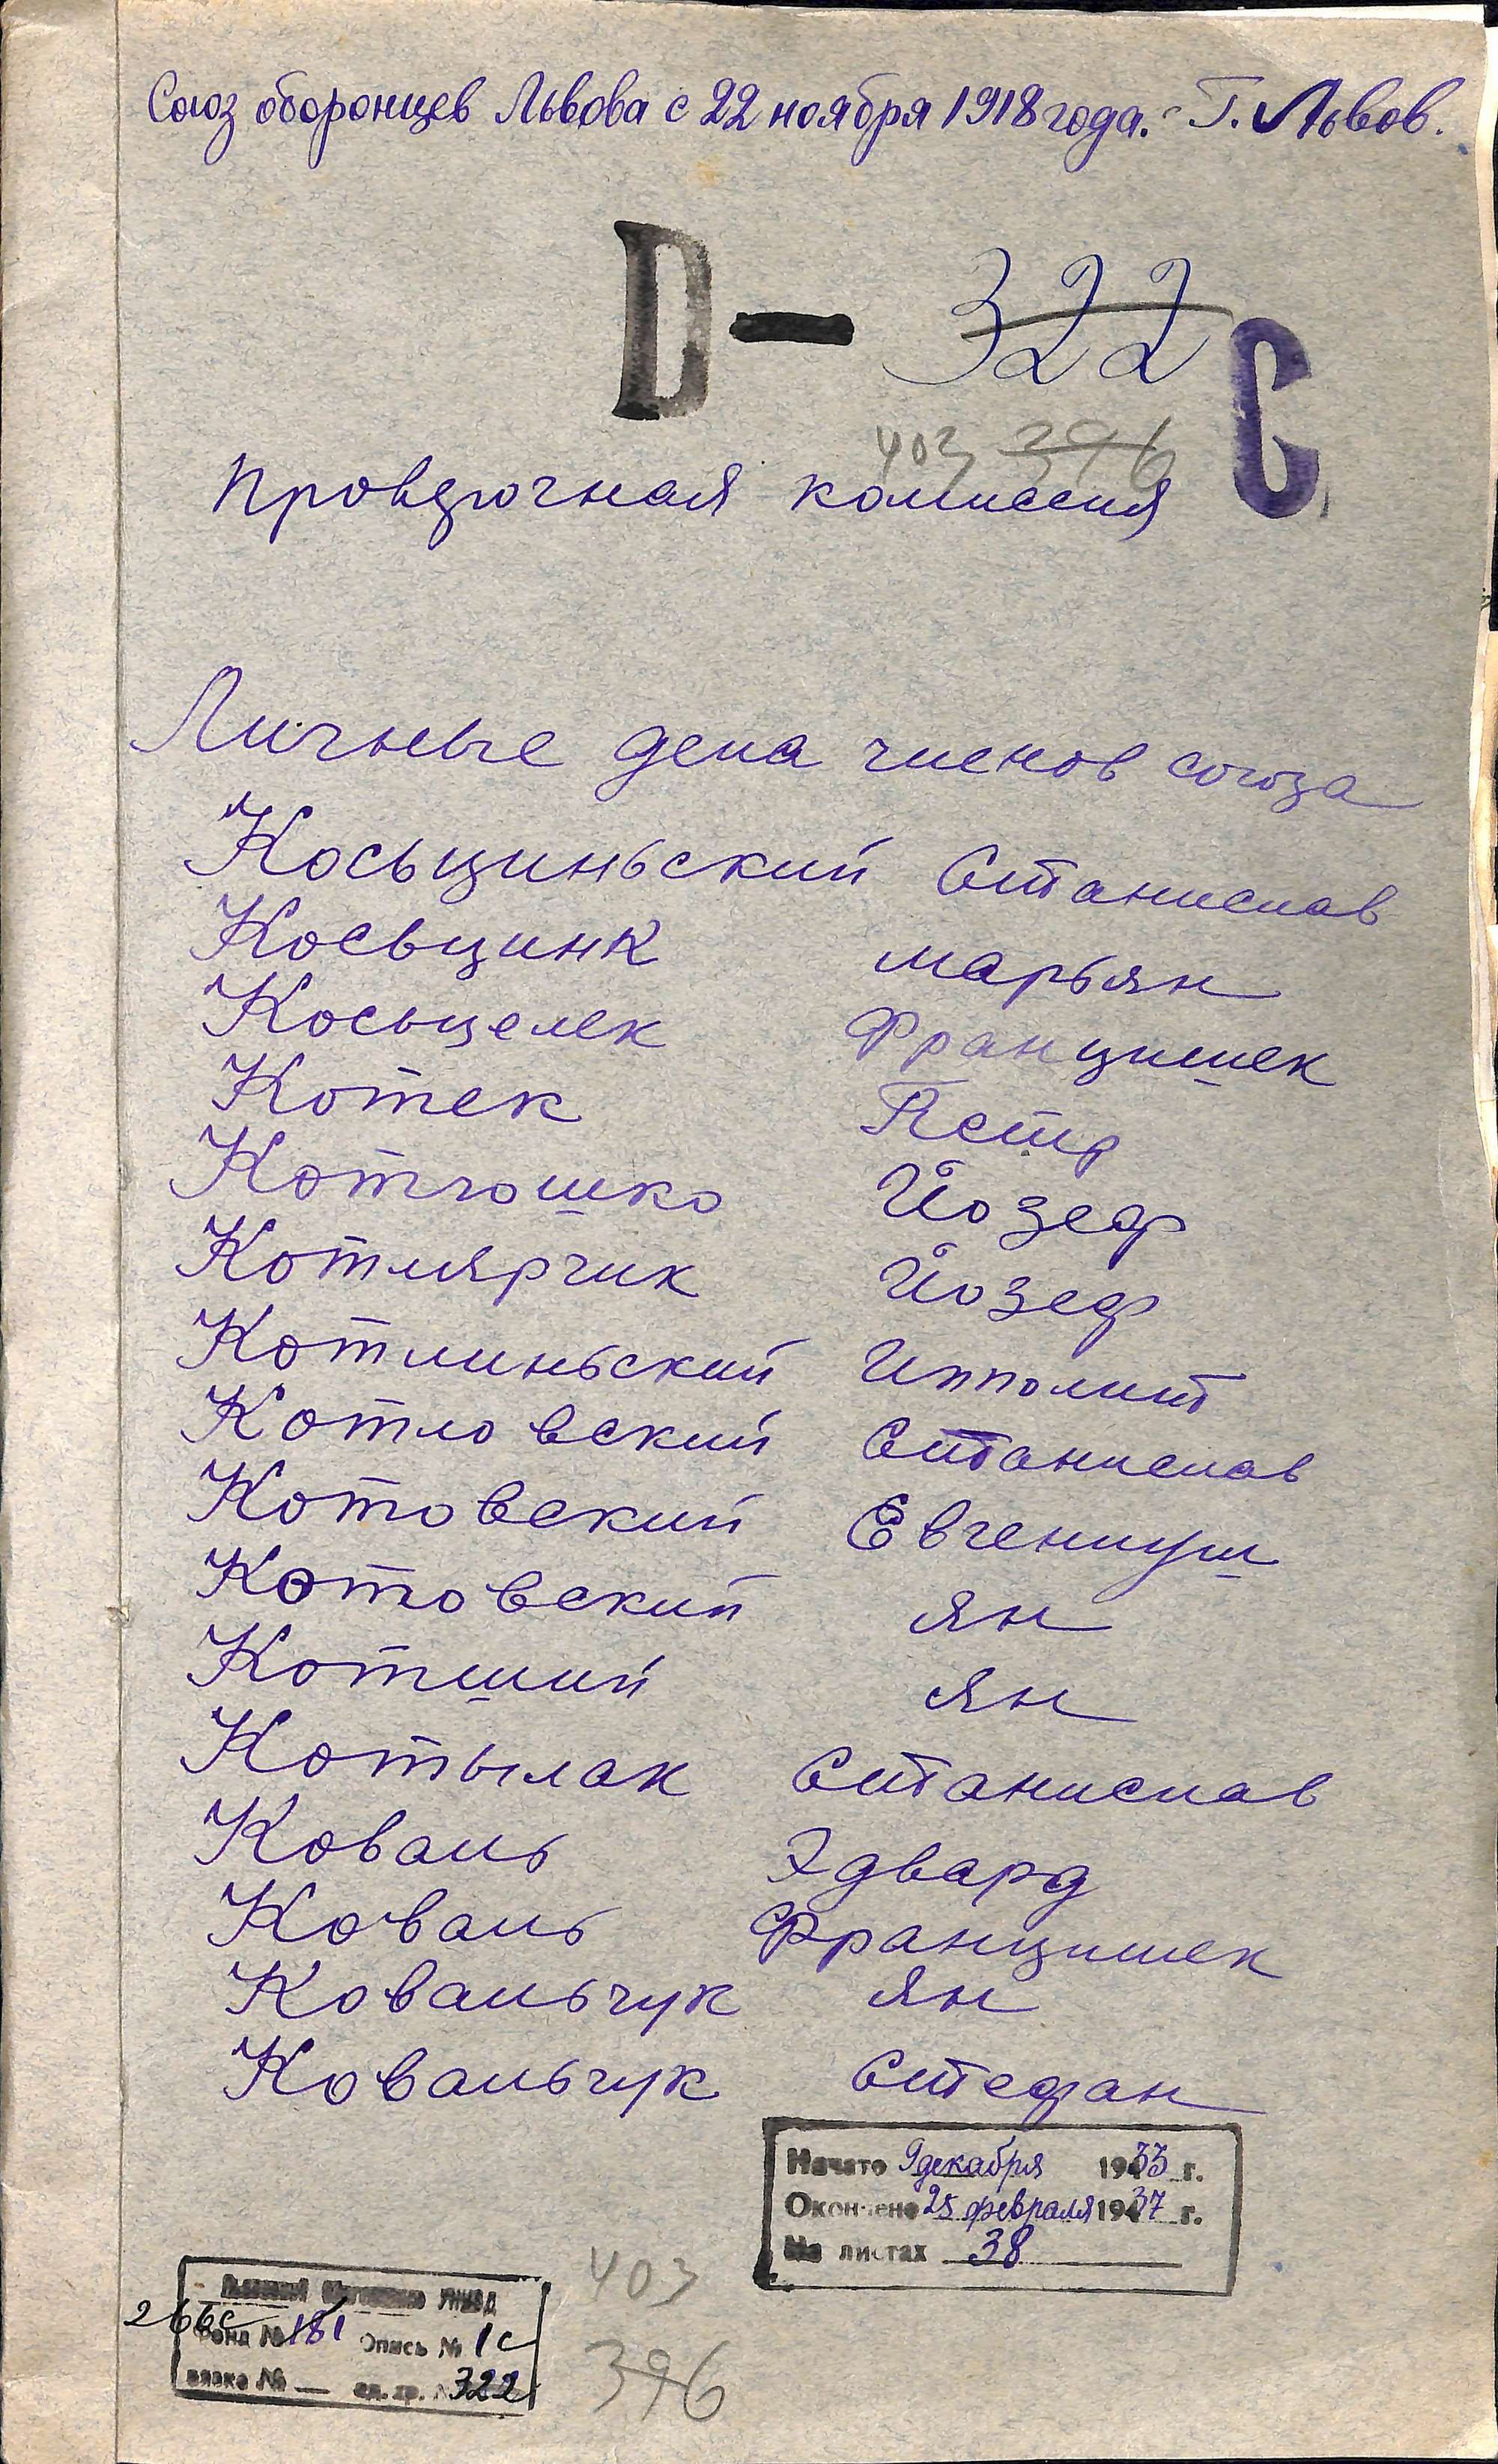 Союз оборонцев Львова с 22 ноября 1918 года. - Г. Львов.
D — 322
С
403 396
Проверочная комиссия
Личные дела членов союза
Косьциньский Станислав
Косьцинк Марьян
Косьцелек Францишек
Котек Петр
Котлошко Йозеф
Котлярчик Йозеф
Котлиньский Ипполит
Котловский Станислав
Котовский Евгениуш
Котовский Ян
Котший Ян
Котылак Станислав
Коваль Эдвард
Коваль Францишек
Ковальчук Ян
Ковальчук Стефан
Начато 9 декабря 1933 г.
Окончено 25 февраля 1937 г.
На листах 38
403
396
266с
Фонд № 181 Опись № 1с
вязка № — ед. хр. № 322